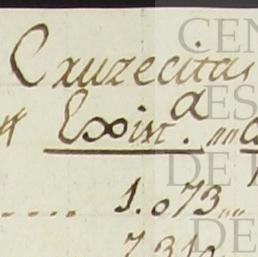 Cruzecitas
Exist.ª
1.073
7.310
CEN
ES
DE
DE